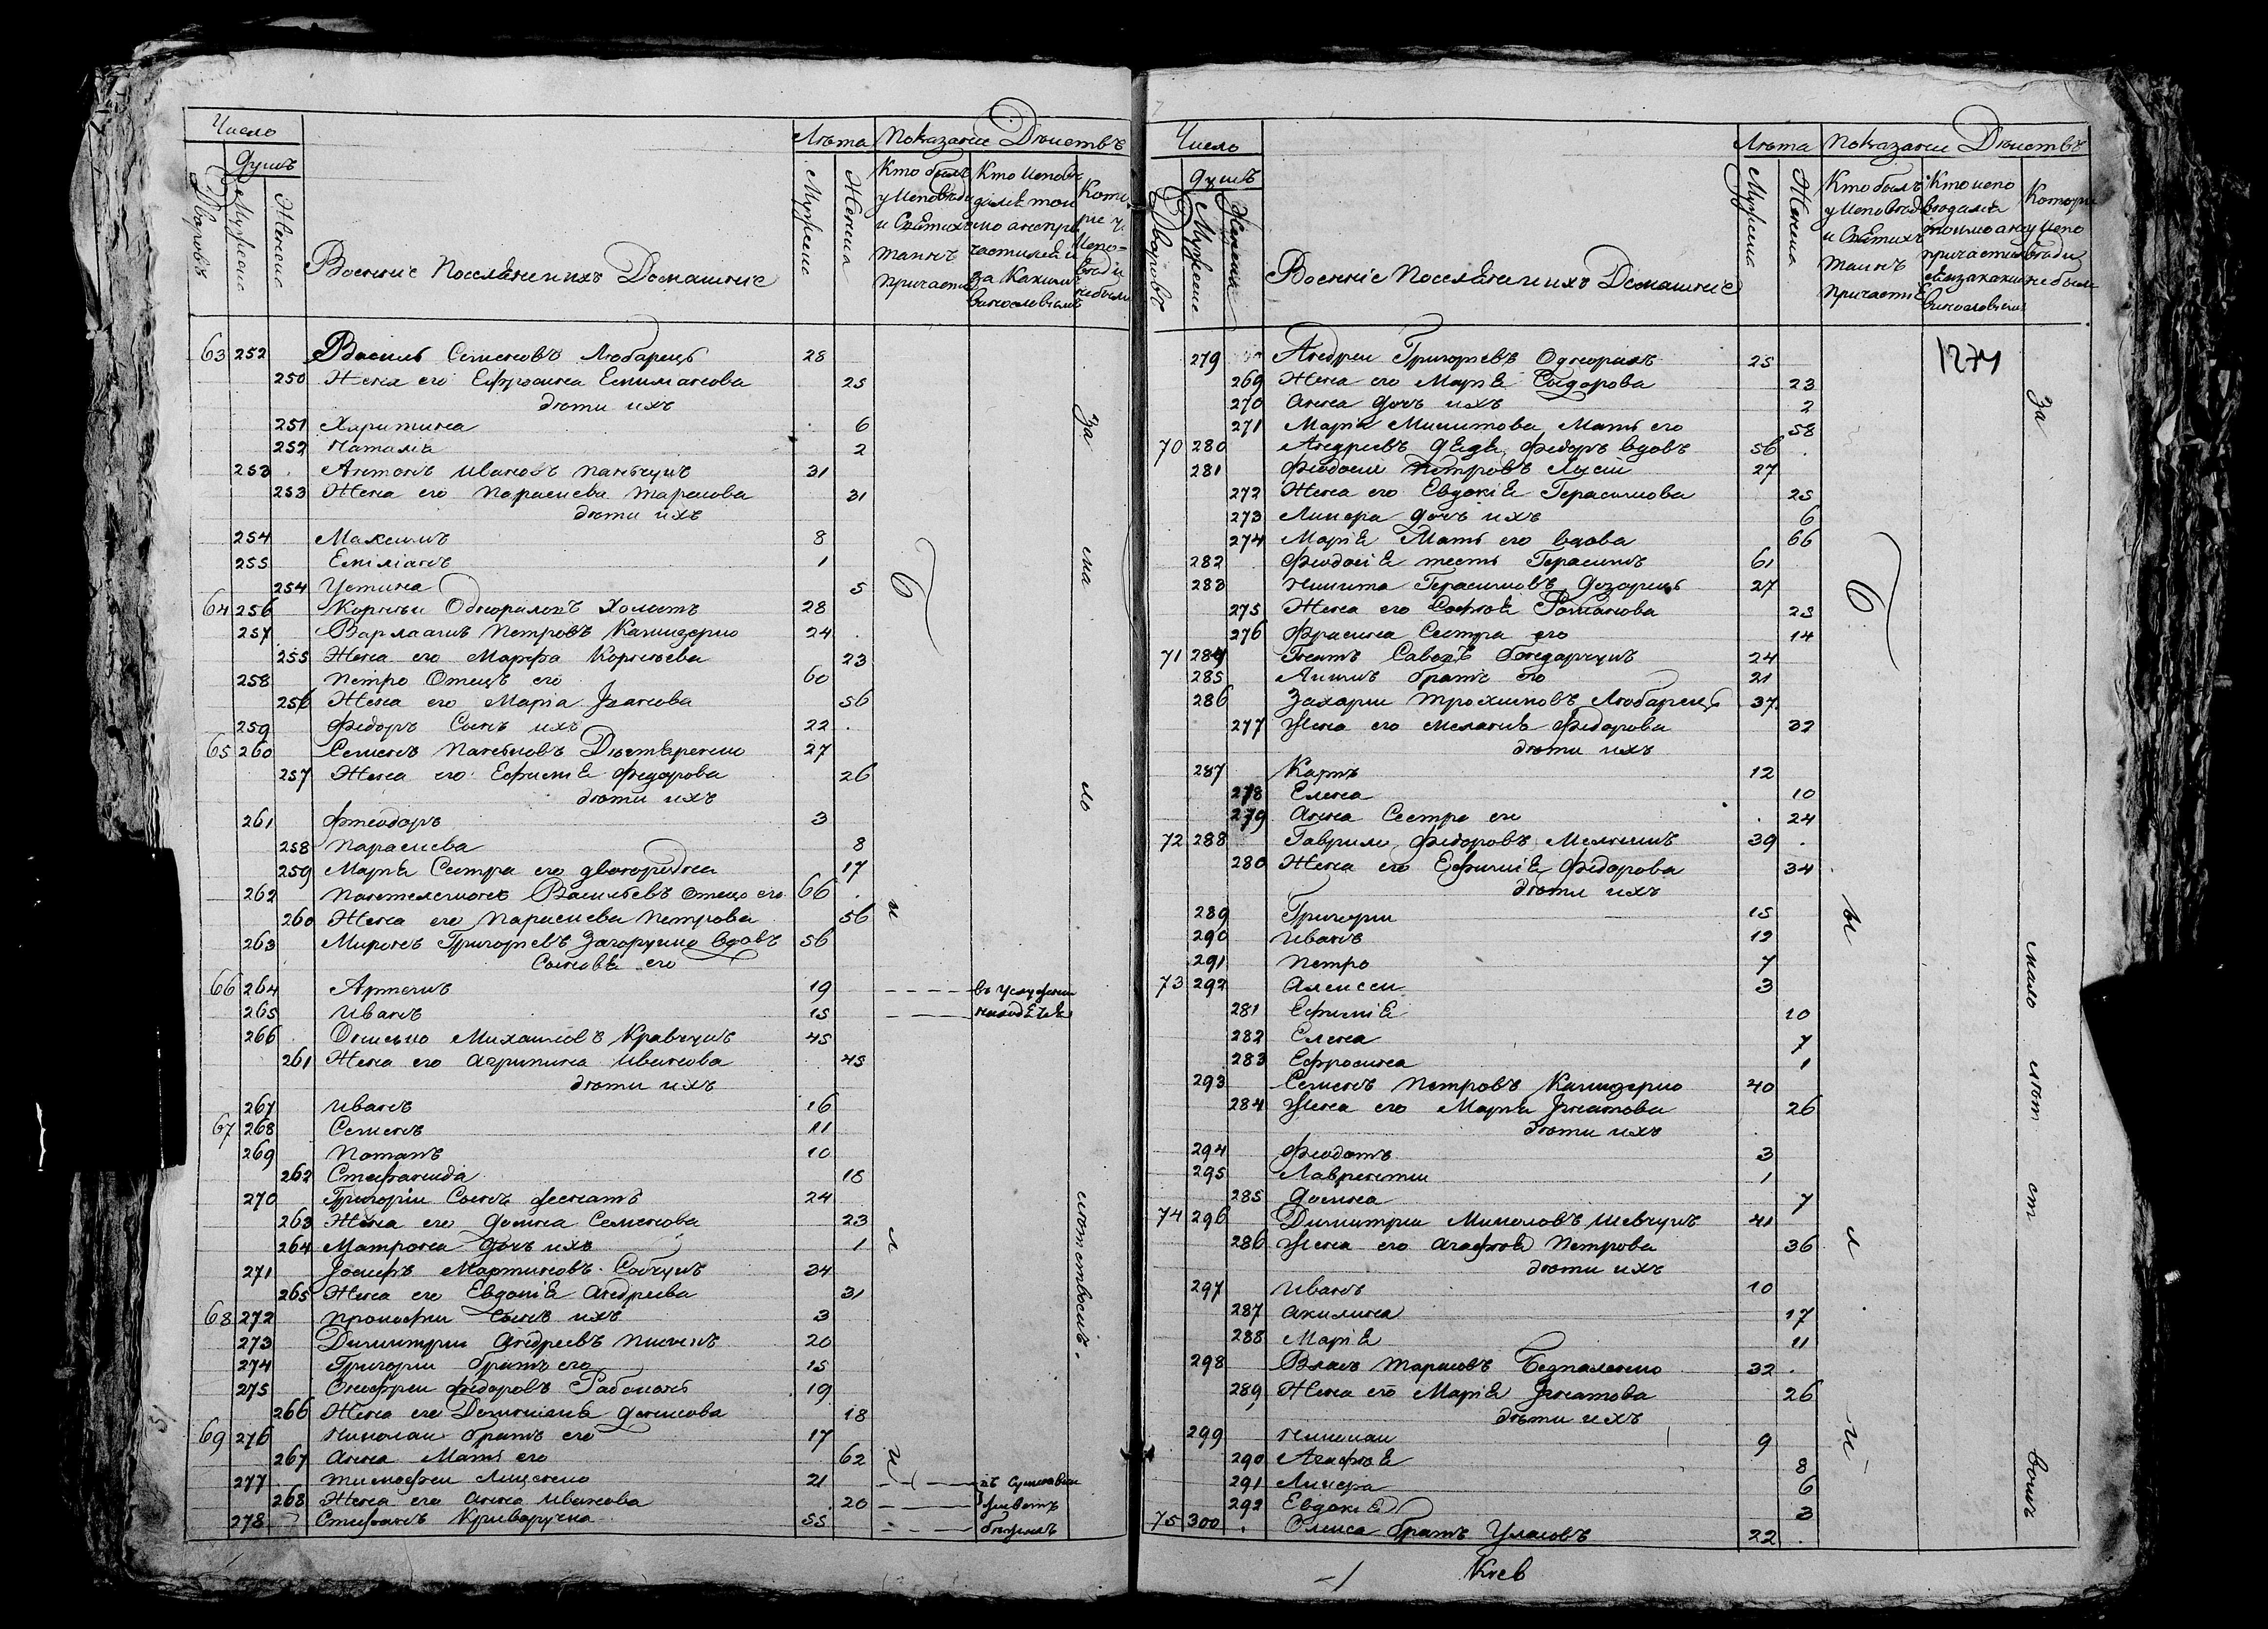 Число
Душъ
Дворовъ
Мужеска
Женска
Военніе Поселяне и ихъ Домашніе
Лѣта
Мужеска
Женска
Показаніе Дѣиствъ
Кто былъ у исповѣди и Святихъ таинъ причастія
Кто исповѣдался токмо а не причастился и за какимъ винословіемъ
Которіе у исповѣди не были
63 252 Василь Семеновъ Любарецъ 28
250 Жена его Ефросина Емилианова 25
дѣти ихъ
251 Харитина 6
252 Наталія 2
253 Антонъ Ивановъ Панъчукъ 31
253 Жена его Параскева Тарасова 31
дѣти ихъ
254 Максимъ 8
255 Емиліанъ 1
254 Устина 5
64 256 Корнѣи Однораломъ Холостъ 28
257 Варлаамъ Петровъ 24
255 Жена его Марфа Корнѣева 23
258 Петро Отецъ его 60
256 Жена его Маріа Іоанова 56
259 Федоръ Сынъ ихъ 22
65 260 Семенъ 27
257 Жена его Ефимія Федорова 26
дѣти ихъ
261 Фтеодоръ 3
258 Параскева 8
259 Марія Сестра его двоюродна 17
262 Пантелемонъ Васильевъ отецъ его 66
260 Жена его Параскева Петрова 56
263 Миронъ Григорьевъ Загоруико вдовъ 56
Синовя его
66 264 Артемъ 19 въ услуженіи
265 Иванъ 15 находятся
266 Осипъ Михаиловъ Кравчукъ 45
261 Жена его Агрипина Иванова 45
дѣти ихъ
267 Иванъ 16
67 268 Семенъ 11
269 Потапъ 10
262 Стефанида 18
270 Григоріи Сынъ женатъ 24
263 Жена его Домна Семенова 23
264 Матрона дочь ихъ 1
271 Іосифъ Мартиновъ 34
265 Жена его Евдокія Андреева 31
68 272 Прокофіи Сынъ ихъ 3
273 Димитріи Андреевъ 20
274 Григоріи братъ его 15
275 Онофреи Федоровъ 19
266 Жена его Денисова 18
69 276 Николаи братъ его 17
267 Анна Мать его 62
277 Тимофеи Лищенко 21
268 Жена его Анна Иванова 20 живетъ
278 Стефанъ Криворучка 55
б и л и
за малолѣтствомъ.
Число
Душъ
Дворовъ
Мужеска
Женска
Военніе Поселяне и ихъ Домашніе
Лѣта
Мужеска
Женска
Показаніе Дѣиствъ
Кто былъ у исповѣди и Святихъ таинъ причастія
Кто исповѣдался токмо а не причастился и за какимъ винословіемъ
Которіе у исповѣди не были
1274
279 Андреи Григорьевъ Однорихъ 25
269 Жена его Марія Сидорова 23
270 Анна дочъ ихъ 2
271 Марія Никитова Мать его 58
70 280 Андреевъ дядя Федоръ вдовъ 56
281 Феодосіи Петровъ 27
272 Жена его Евдокія Герасимова 25
273 Ликера дочъ ихъ 6
274 Марія Мать его вдова 66
282 Феодосія тесть Герасимъ 61
283 Никита Герасимовъ 27
275 Жена его Софія Романова 23
276 Фрасина Сестра его 14
71 284 Игнатъ Савовъ Бондарчукъ 24
285 Якимъ братъ его 21
286 Захаріи Трохимовъ Любарецъ 37
277 Жена его Меланія Федорова 32
дѣти ихъ
287 Карпъ 12
278 Елена 10
279 Анна Сестра его 24
72 288 Гаврило Федоровъ Мелникъ 39
280 Жена его Ефимія Федорова 34
дѣти ихъ
289 Григоріи 15
290 Иванъ 12
291 Петро 7
73 292 Алексеи 3
281 Ефимія 10
282 Елена 7
283 Ефросина 1
293 Семенъ Петровъ 40
284 Жена его Марія Игнатова 26
дѣти ихъ
294 Феодотъ 3
295 Лаврентіи 1
285 Домна 7
74 296 Димитріи Николовъ Шевчукъ 41
286 Жена его Агафія Петрова 36
дѣти ихъ
297 Иванъ 10
287 Акилина 17
288 Марія 11
298 Власъ Тарасовъ Безпаленко 32
289 Жена его Марія Игнатова 26
дѣти ихъ
299 9
290 Агафія 8
291 Ликера 6
292 Евдокія 3
75 300 Олекса братъ Уласовъ 22
б и л и
за малолѣтствомъ